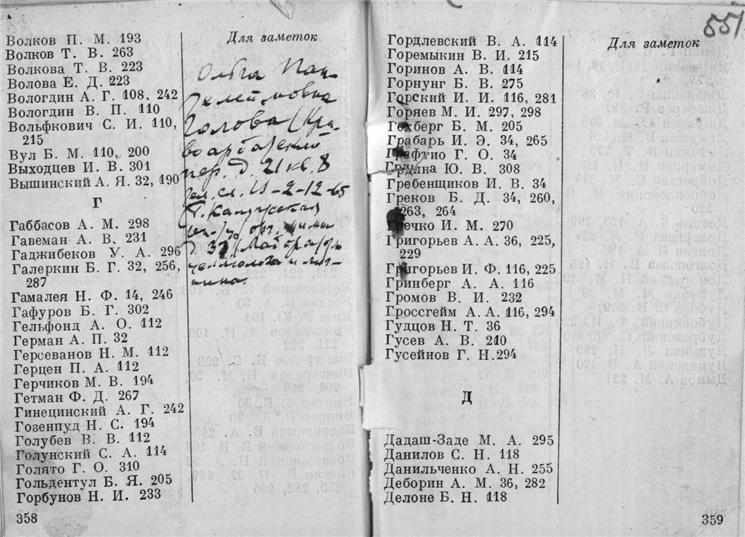 Волков П. М. 193
Волков Т. В. 263
Волкова Т. В. 223
Волова Е. Д. 223
Вологдин А. Г. 108, 242
Вологдин В. П. 110
Вольфкович С. И. 110,
215
Вул Б. М. 110, 200
Выходцев И. В. 301
Вышинский А. Я. 32, 190
Г
Габбасов А. М. 298
Гавеман А. В. 231
Гаджибеков У. А. 296
Галеркин Б. Г. 32, 256,
287
Гамалея Н. Ф. 14, 246
Гафуров Б. Г. 302
Гельфонд А. О. 112
Герман А. П. 32
Герсеванов Н. М. 112
Герцен П. А. 112
Герчиков М. В. 194
Гетман Ф. Д. 267
Гинецинский А. Г. 242
Гозенпуд Н. С. 194
Голубев В. В. 112
Голунский С. А. 114
Голято Г. О. 310
Гольдентул Б. Я. 205
Горбунов Н. И. 233
358
Для заметок
Ольга Пан
телеймовна
Голова
пер. д. 21 кв. 8
2-12-65
Калужская
Гордлевский В. А. 114
Горемыкин В. И. 215
Горинов А. В. 114
Горнунг Б. В. 275
Горский И. И. 116, 281
Горяев М. И. 297, 298
Гохберг Б. М. 205
Грабарь И. Э. 34, 265
Графтио Г. О. 34
Ю. В. 308
Гребенщиков И. В. 34
Греков Б. Д. 34, 260,
263, 264
Гречко И. М. 270
Григорьев А. А. 36, 225,
229
Григорьев И. Ф. 116, 225
Гринберг А. А. 116
Громов В. И. 232
Гроссгейм А. А. 116, 294
Гудцов Н. Т. 36
Гусев А. В. 210
Гусейнов Г. Н. 294
Д
Дадаш-Заде М. А. 295
Данилов С. Н. 118
Данильченко А. Н. 255
Деборин А. М. 36, 282
Делоне Б. Н. 118
Для заметок
359